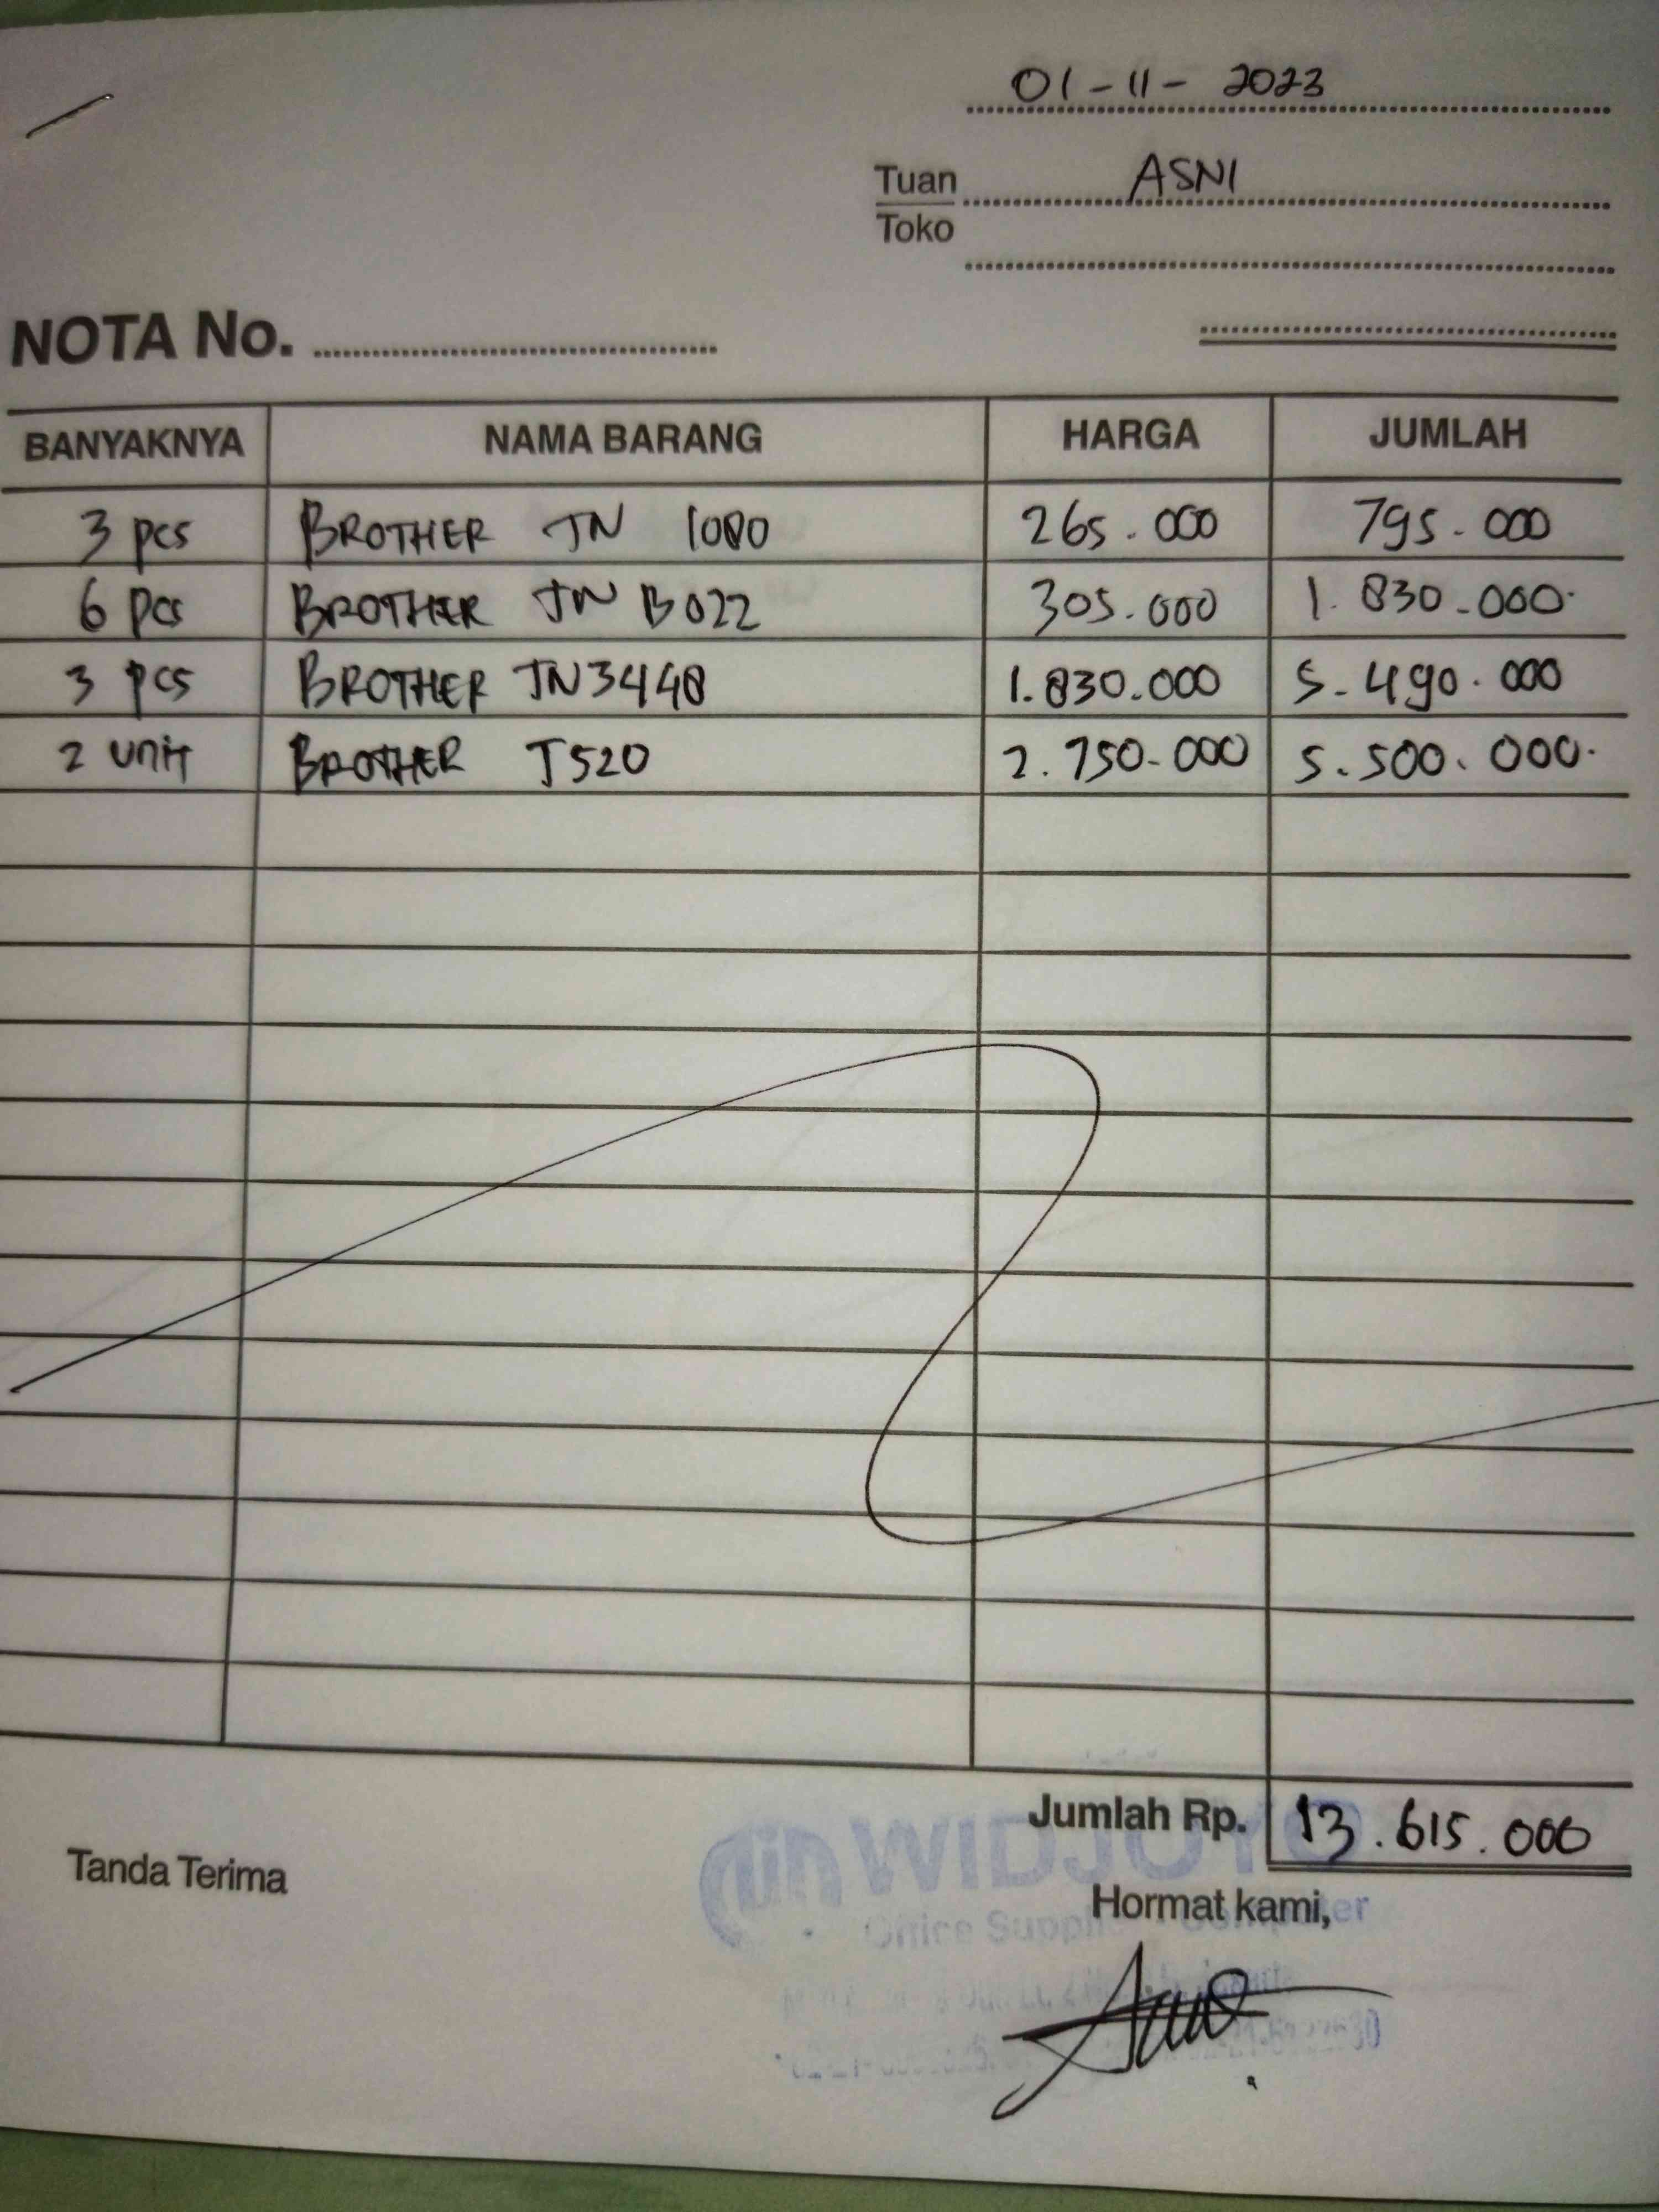 01-11-2023
Tuan ASNI
Toko
NOTA No.
BANYAKNYA NAMA BARANG HARGA JUMLAH
3 pcs BROTHER TN 1080 265.000 795.000
6 pcs BROTHER TN B022 305.000 1.830.000
3 pcs BROTHER TN3448 1.830.000 5.490.000
2 unit BROTHER T520 2.750.000 5.500.000
Jumlah Rp. 13.615.000
WIDJOYO
Tanda Terima
Hormat kami,
Office